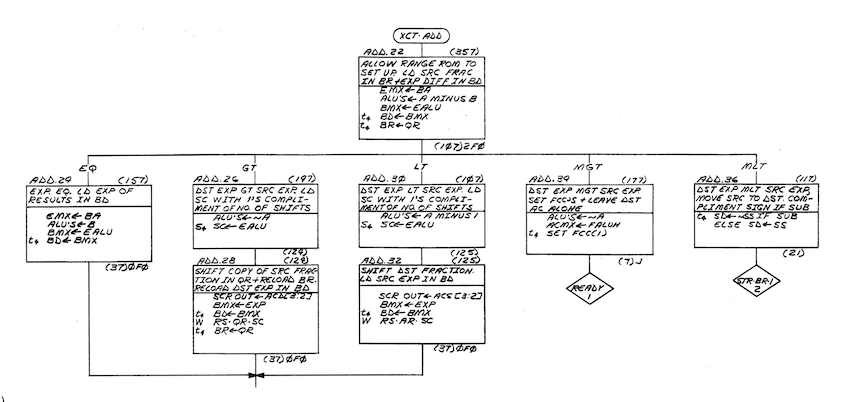 XCT·ADD
ADD.22 (357)
ALLOW RANGE ROM TO
SET UP. LD SRC FRAC
IN BR+EXP DIFF IN BD
EMX←BA
ALU'S←A MINUS B
BMX←EALU
t4 BD←BMX
t4 BR←QR
(107)2F0
EQ
ADD.29 (157)
EXP. EQ. LD EXP OF
RESULTS IN BD
EMX←BA
ALU'S←B
BMX←EALU
t4 BD←BMX
(37)ØFØ
GT
ADD.26 (147)
DST EXP GT SRC EXP. LD
SC WITH 1'S COMPLI-
MENT OF NO. OF SHIFTS
ALU'S←~A
S4 SC←EALU
(124)
ADD.28 (124)
SHIFT COPY OF SRC FRAC-
TION IN QR+RELOAD BR.
RELOAD DST EXP IN BD
SCR OUT←ACD[3:2]
BMX←EXP
t4 BD←BMX
W RS·QR·SC
t4 BR←QR
(37)ØFØ
LT
ADD.30 (107)
DST EXP LT SRC EXP. LD
SC WITH 1'S COMPLI-
MENT OF NO. OF SHIFTS
ALU'S←A MINUS 1
S4 SC←EALU
(125)
ADD.32 (125)
SHIFT DST FRACTION.
LD SRC EXP IN BD
SCR OUT←ACS[3:2]
BMX←EXP
t4 BD←BMX
W RS·AR·SC
(37)ØFØ
MGT
ADD.34 (177)
DST EXP MGT SRC EXP
SET FCC'S + LEAVE DST
AC ALONE
ALU'S←~A
ACMX←FALUH
t4 SET FCC(1)
(7)J
READY
1
MLT
ADD.36 (117)
DST EXP MLT SRC EXP,
MOVE SRC TO DST. COM-
PLIMENT SIGN IF SUB
t4 SD←~SS IF SUB
ELSE SD←SS
(21)
STR·BR·1
2